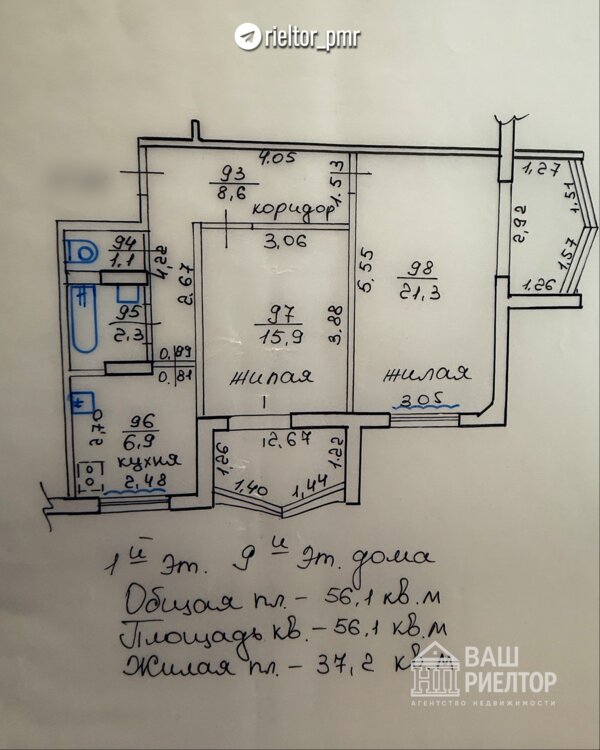 rieltor_pmr
4.05
93
8,6
1.53
коридор
1,27
1,51
2,92
1,57
1.26
94
1.1
4,22
2.67
3.06
5.55
98
21.3
95
2.3
97
15.9
3.88
0.89
0.81
жилая
жилая
3.05
2,70
96
6.9
кухня
2,48
1,26
2.67
1.22
1,40
1,44
1й эт. 9и эт. дома
Общая пл. – 56,1 кв.м
Площадь кв. – 56,1 кв.м
Жилая пл. – 37,2 кв.м
ВАШ
РИЕЛТОР
АГЕНТСТВО НЕДВИЖИМОСТИ